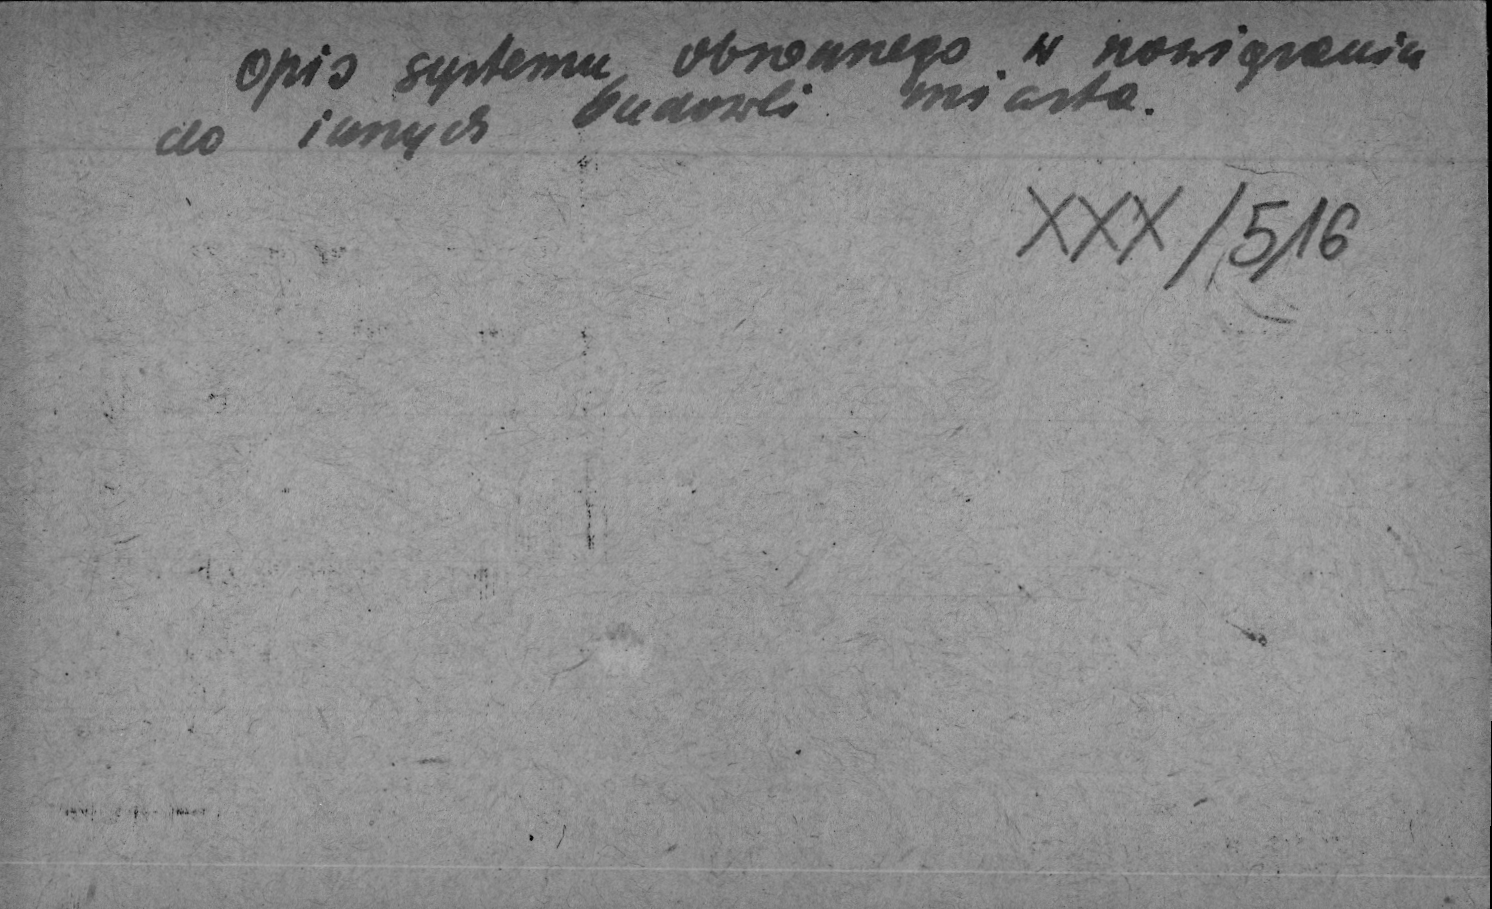 Opis systemu obronnego w nawiązaniu
do innych budowli miasta.
XXX/516